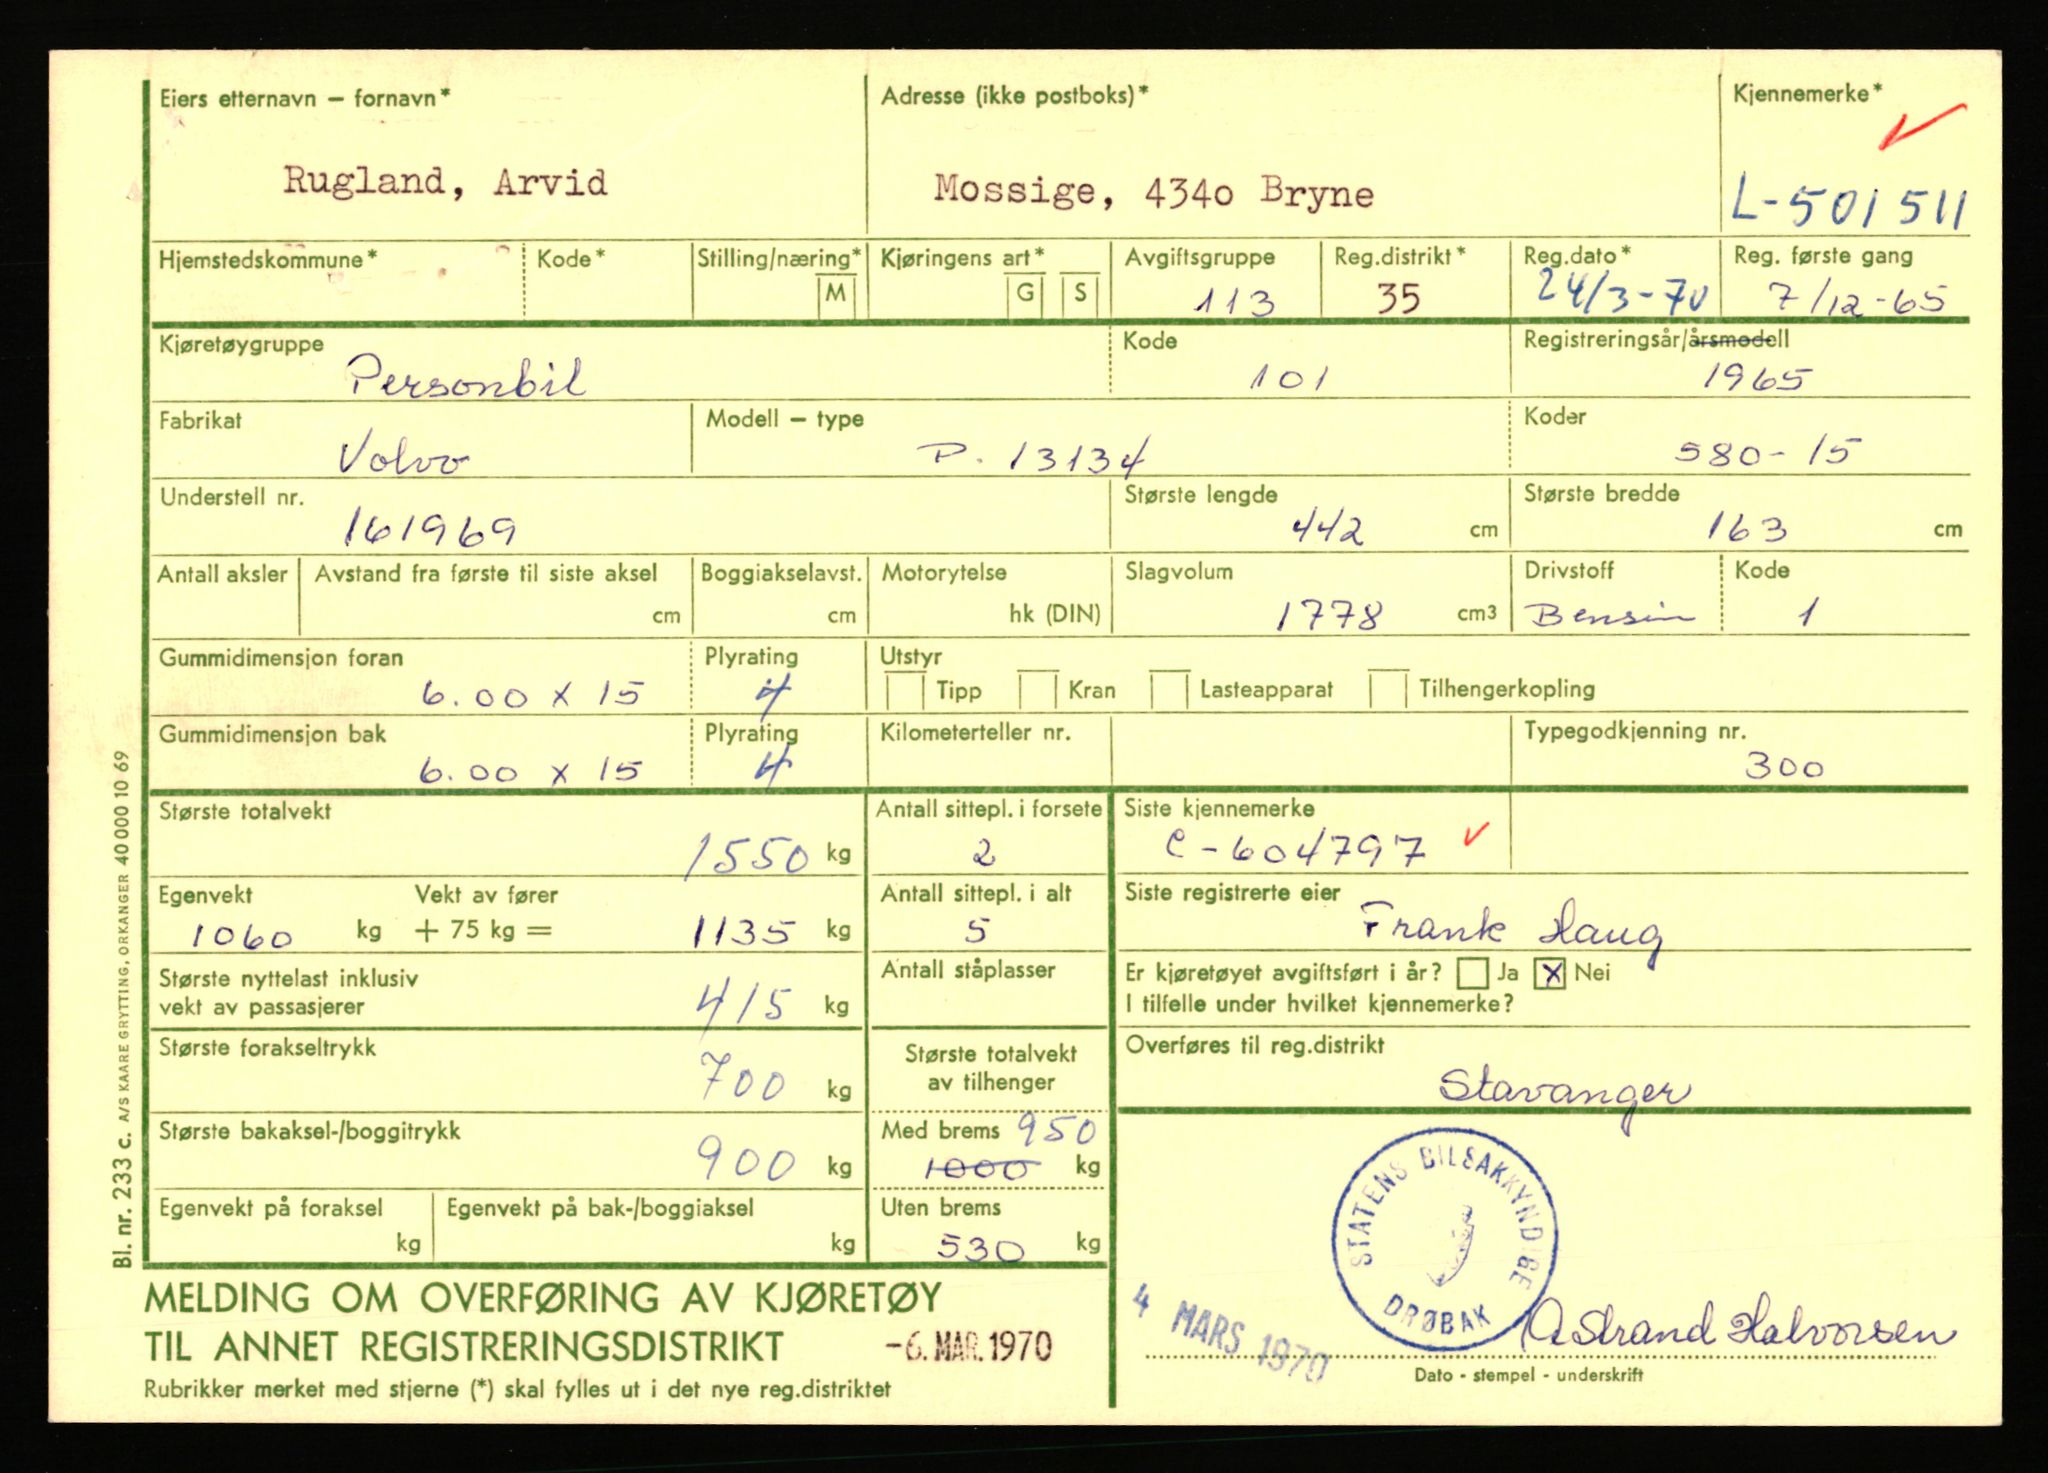 Eiers etternavn – fornavn* Adresse (ikke postboks)* Kjennemerke*
Rugland, Arvid Mossige, 4340 Bryne L-501511
Hjemstedskommune* Kode* Stilling/næring* Kjøringens art* Avgiftsgruppe Reg.distrikt* Reg.dato* Reg. første gang
M G S 113 35 24/3-70 7/12-65
Kjøretøygruppe Kode Registreringsår/årsmodell
Personbil 101 1965
Fabrikat Modell – type Koder
Volvo P. 13134 580-15
Understell nr. Største lengde Største bredde
161969 442 cm 163 cm
Antall aksler Avstand fra første til siste aksel Boggiakselavst. Motorytelse Slagvolum Drivstoff Kode
cm cm hk (DIN) 1778 cm3 Bensin 1
Gummidimensjon foran Plyrating Utstyr
6.00 x 15 4 Tipp Kran Lasteapparat Tilhengerkopling
Gummidimensjon bak Plyrating Kilometerteller nr. Typegodkjenning nr.
6.00 x 15 4 300
Største totalvekt Antall sittepl. i forsete Siste kjennemerke
1550 kg 2 C-604797
Egenvekt Vekt av fører Antall sittepl. i alt Siste registrerte eier
1060 kg + 75 kg = 1135 kg 5 Frank Haug
Største nyttelast inklusiv Antall ståplasser Er kjøretøyet avgiftsført i år? Ja x Nei
vekt av passasjerer 415 kg I tilfelle under hvilket kjennemerke?
Største forakseltrykk Største totalvekt Overføres til reg.distrikt
700 kg av tilhenger Stavanger
Største bakaksel-/boggitrykk Med brems 950
900 kg 1000 kg
Egenvekt på foraksel Egenvekt på bak-/boggiaksel Uten brems
kg kg 530 kg
STATENS BILSAKKYNDIGE
DRØBAK
MELDING OM OVERFØRING AV KJØRETØY
TIL ANNET REGISTRERINGSDISTRIKT -6. MAR. 1970
4 MARS 1970 Astrand Halvorsen
Rubrikker merket med stjerne (*) skal fylles ut i det nye reg.distriktet Dato - stempel - underskrift
Bl. nr. 233 c. A/S KAARE GRYTTING, ORKANGER 40 000 10 69